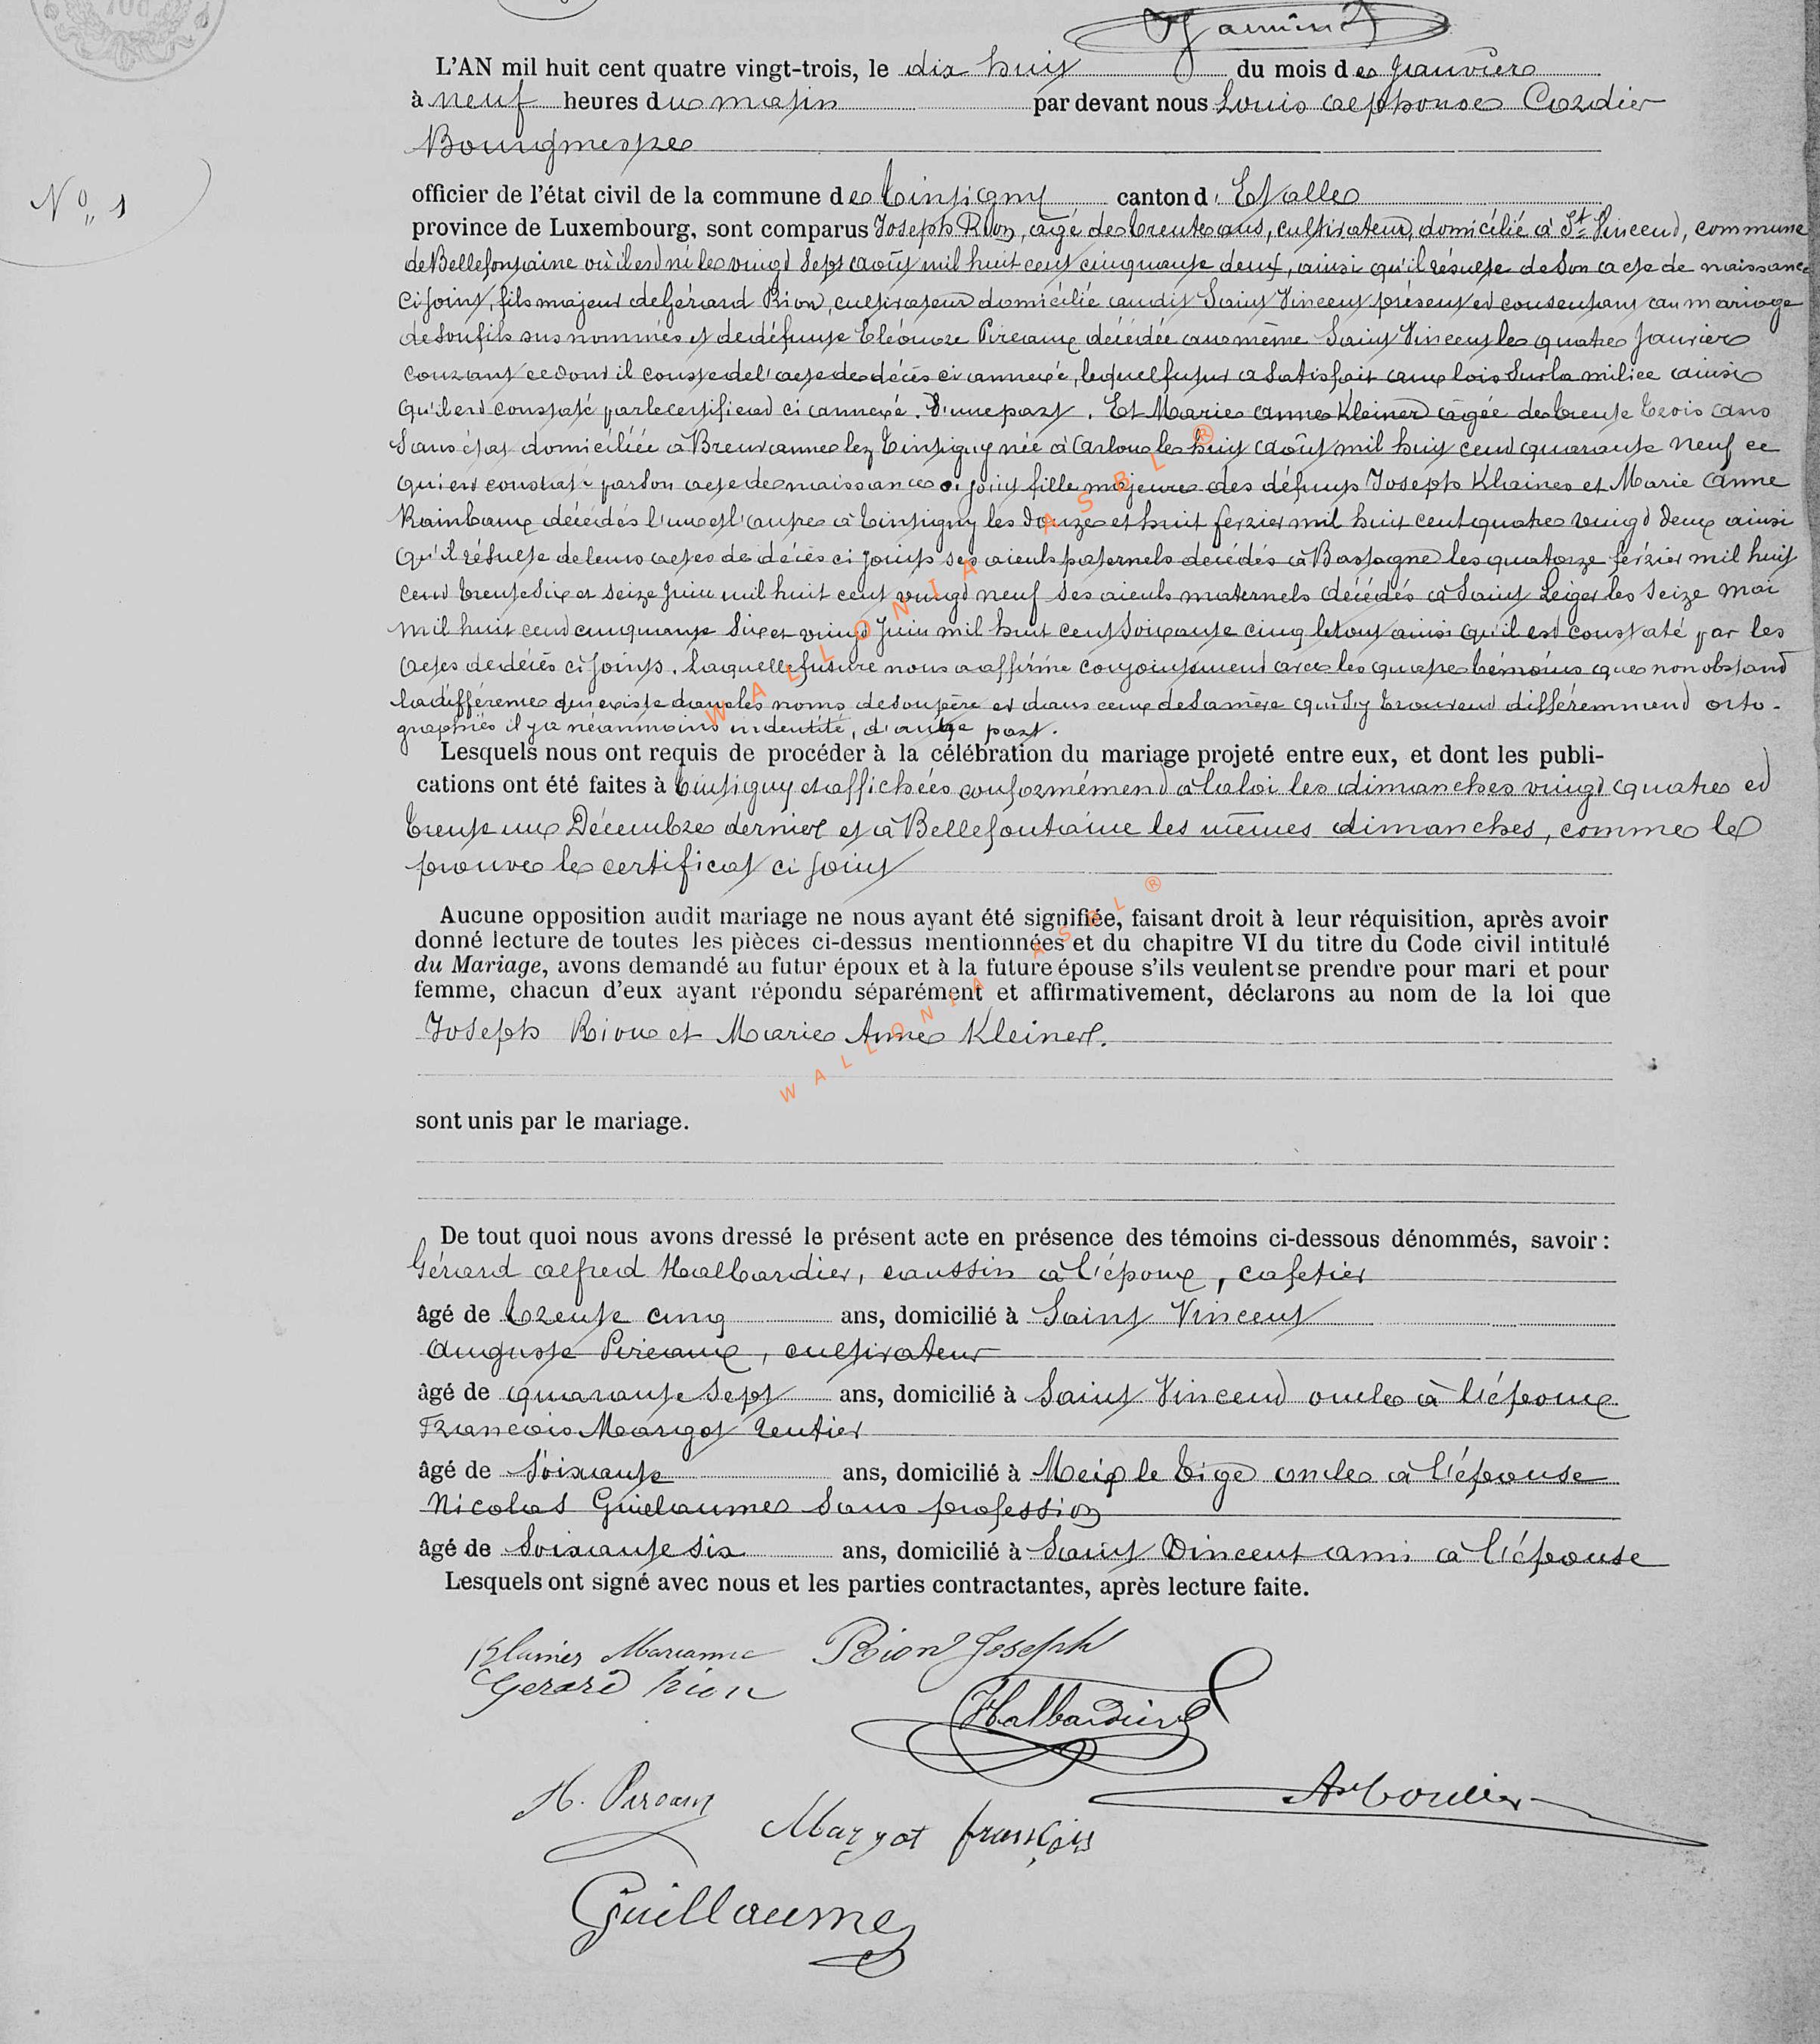 L'AN mil huit cent quatre vingt-trois, le dix huit du mois de Janvier
à neuf heures du matin par devant nous Louis Alphonse Cordier
Bourgmestre
N° 1
officier de l'état civil de la commune de Tintigny canton d' Etalle
province de Luxembourg, sont comparus Joseph Rion, âgé de trente ans, cultivateur, domicilié à St Vincent, commune
de Bellefontaine où il est né le vingt sept août mil huit cent cinquante deux, ainsi qu'il résulte de son acte de naissance
ci joint, fils majeur de Gérard Rion, cultivateur domicilié audit Saint Vincent présent et consentant au mariage
de son fils sus nommé et de défunte Eléonore Pireaux décédée au même Saint Vincent le quatre Janvier
courant ce dont il conste de l'acte de décès ci annexé, lequel futur a satisfait aux lois sur la milice ainsi
qu'il est constaté par le certificat ci annexé. D'une part. Et Marie Anne Kleiner âgée de trente trois ans
sans état domiciliée à Breuvanne lez Tintigny née à Arlon le huit août mil huit cent quarante neuf ce
qui est constaté par son acte de naissance ci joint fille majeure des défunts Joseph Klaines et Marie Anne
Rainbaux décédés l'un et l'autre à Tintigny les douze et huit février mil huit cent quatre vingt deux ainsi
qu'il résulte de leurs actes de décès ci joints ses aieuls paternels décédés à Bastogne les quatorze février mil huit
cent trente six et seize Juin mil huit cent vingt neuf ses aieuls maternels décédés à Saint Léger les seize mai
mil huit cent cinquante six et vingt Juin mil huit cent soixante cinq le tout ainsi qu'il est constaté par les
actes de décès ci joints. Laquelle future nous a affirmé conjointement avec les quatre témoins que nonobstant
la différence qui existe dans les noms de son père et dans ceux de sa mère qui s'y trouvent différemment orto-
graphiés il y a néanmoins indentité, d'autre part.
Lesquels nous ont requis de procéder à la célébration du mariage projeté entre eux, et dont les publi-
cations ont été faites à Tintigny et affichées conformément à la loi les dimanches vingt quatre et
trente un Décembre dernier et à Bellefontaine les mêmes dimanches, comme le
prouve le certificat ci joint
Aucune opposition audit mariage ne nous ayant été signifiée, faisant droit à leur réquisition, après avoir
donné lecture de toutes les pièces ci-dessus mentionnées et du chapitre VI du titre du Code civil intitulé
du Mariage, avons demandé au futur époux et à la future épouse s'ils veulent se prendre pour mari et pour
femme, chacun d'eux ayant répondu séparément et affirmativement, déclarons au nom de la loi que
Joseph Rion et Marie Anne Kleiner.
sont unis par le mariage.
De tout quoi nous avons dressé le présent acte en présence des témoins ci-dessous dénommés, savoir :
Gérard Alfred Halbardier, coussin à l'époux, cafetier
âgé de trente cinq ans, domicilié à Saint Vincent
Auguste Pireaux, cultivateur
âgé de quarante sept ans, domicilié à Saint Vincent oncle à l'époux
François Margot rentier
âgé de soixante ans, domicilié à Meix le Tige oncle à l'épouse
Nicolas Guillaume sans profession
âgé de soixante six ans, domicilié à Saint Vincent ami à l'épouse
Lesquels ont signé avec nous et les parties contractantes, après lecture faite.
Klainer Marianne Rion Joseph
Gerard Rion
Halbardier
A. Cordier
Margot françois
Guillaume
WALLONIA ASBL ®
WALLONIA ASBL ®